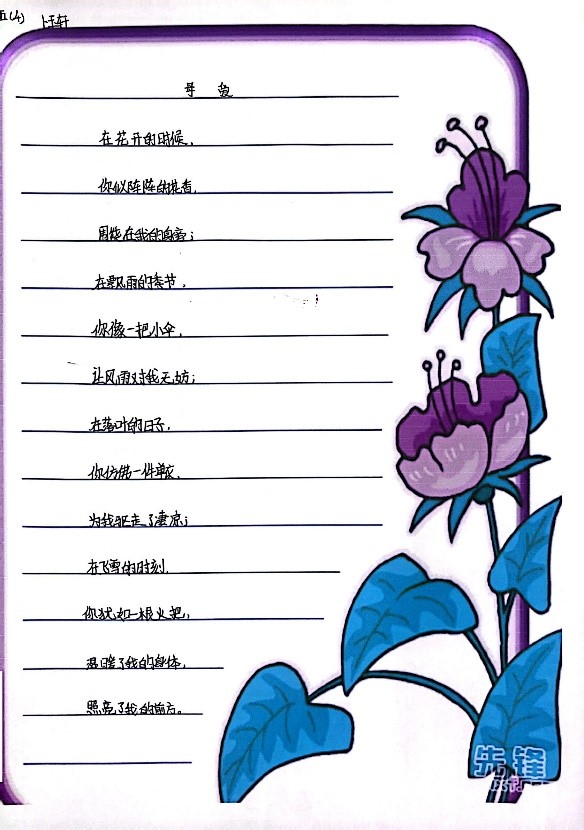 五(4) 卜钰轩
母爱
在花开的时候，
你似阵阵的桃香，
围绕在我的身旁；
在飘雨的季节，
你像一把小伞，
让风雨对我无妨；
在落叶的日子，
你仿佛一件单衣，
为我驱走了凄凉；
在飞雪的时刻，
你犹如一根火把，
温暖了我的身体，
照亮了我的前方。
先锋